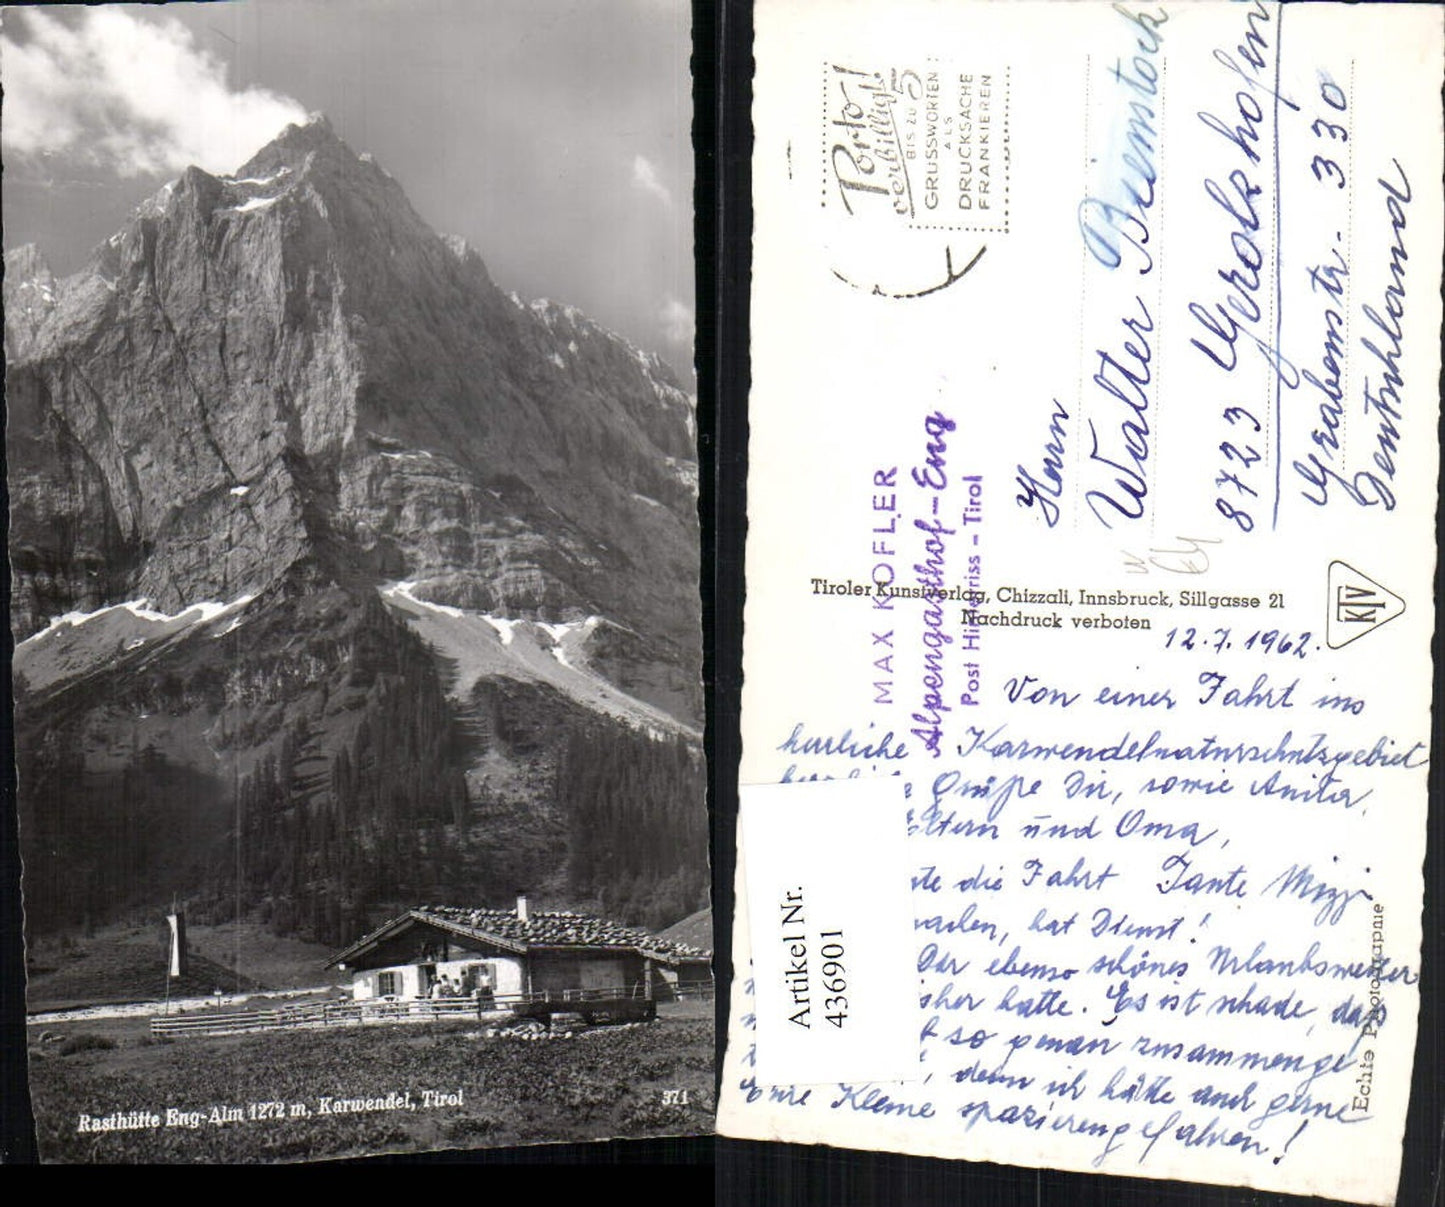 Rasthütte Eng-Alm 1272 m, Karwendel, Tirol
371
Porto!
verbilligt!
BIS ZU 5
GRUSSWORTEN
ALS
DRUCKSACHE
FRANKIEREN
MAX KOFLER
Alpengasthof-Eng
Post Hinterriss - Tirol
Herrn
Walter
8723 Gerolzhofen
Grabenstr. 330
Deutschland
Tiroler Kunstverlag, Chizzali, Innsbruck, Sillgasse 21
Nachdruck verboten
KTV
12.7.1962.
Von einer Fahrt ins
herrliche Karwendelnaturschutzgebiet
Grüße Dir, sowie Anita,
Eltern und Oma,
die Fahrt Tante Mizzi
hat Dienst!
ebenso schönes Urlaubswetter
hatte. Es ist schade, daß
so genau
denn ich hätte auch gerne
Eure Kleine spazierengefahren!
Echte Photographie
Artikel Nr.
436901